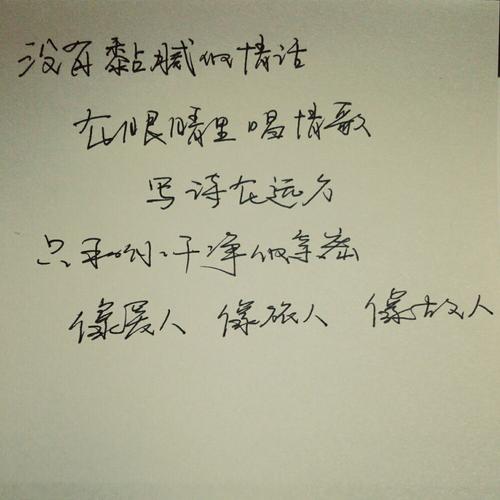 没有黏腻的情话
在眼睛里唱情歌
写诗在远方
只和你干净的亲密
像爱人 像旅人 像故人